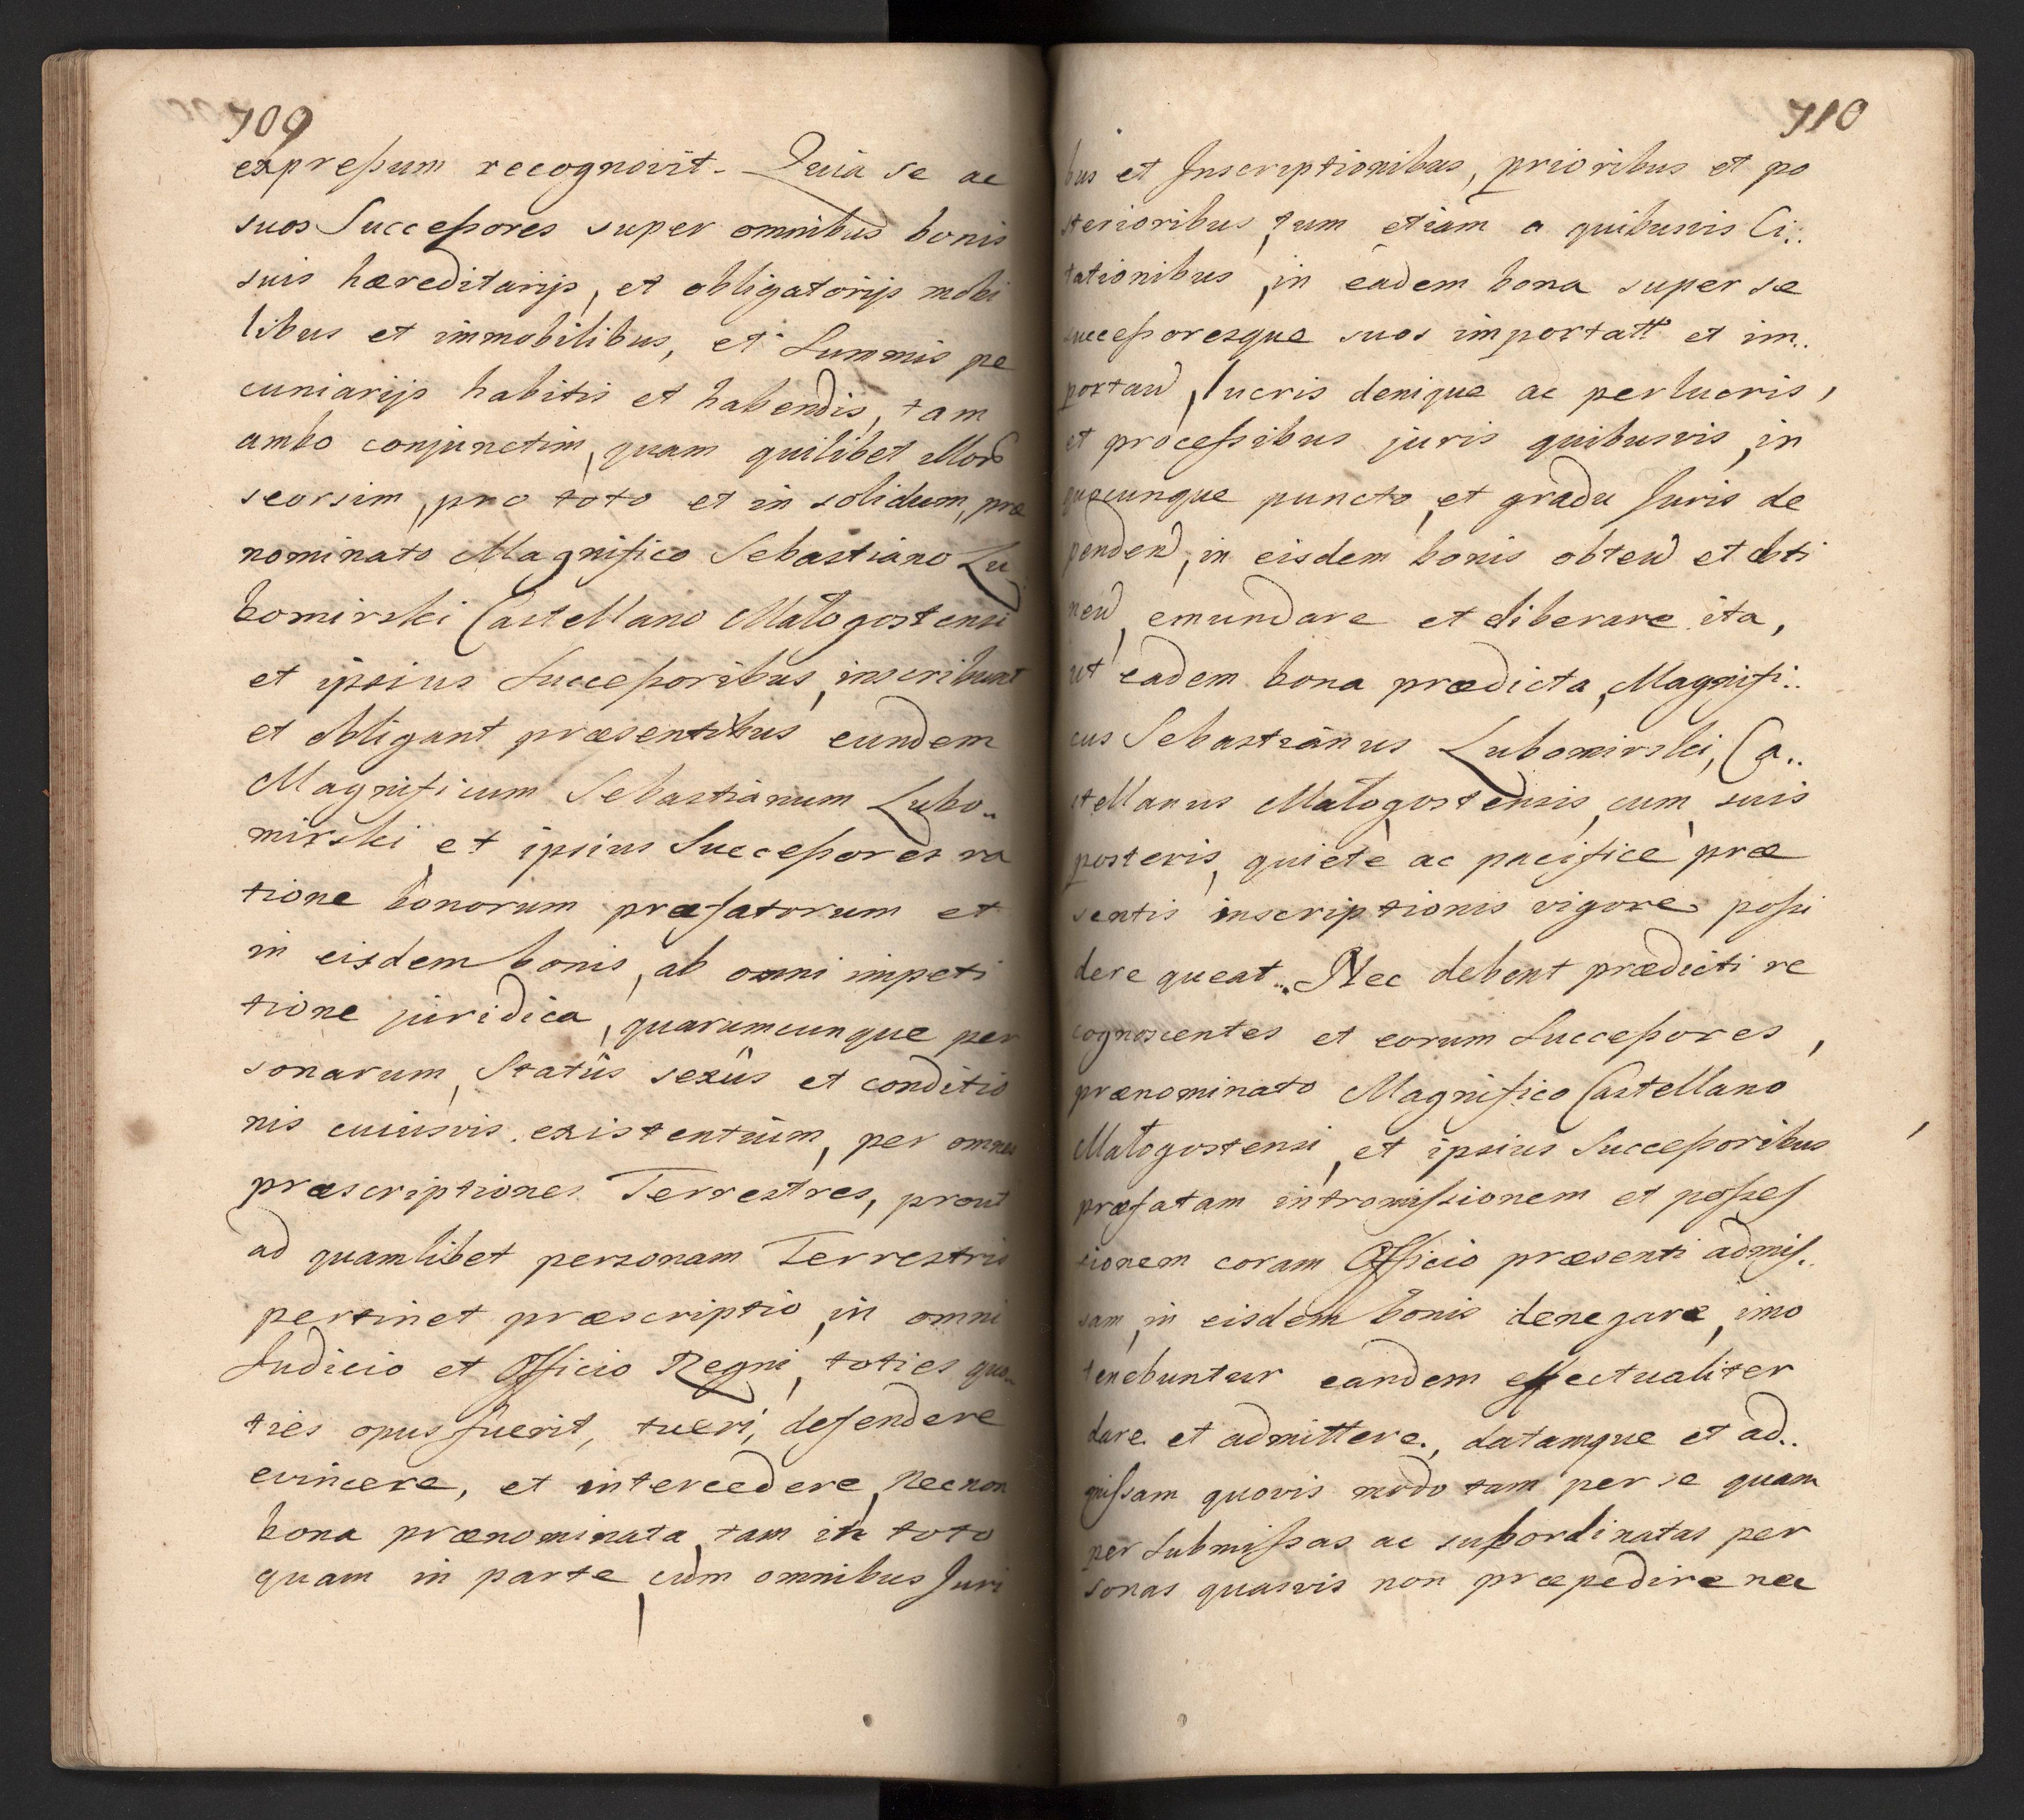 709
expreſsum recognovit. Quia se ac
suos Succeſsores super omnibus bonis
suis hæreditarijs, et obligatorijs mobi
libus et immobilibus, et Summis pe
cuniarijs habitis et habendis, tam
ambo conjunctim, quam quilibet
seorsim, pro toto et in solidum, præ
nominato Magnifico Sebastiano Lu
bomirski Castellano Małogostensi
et ipsius Succeſsoribus, inscribunt
et obligant præsentibus eundem
Magnificum Sebastianum Lubo..
mirski et ipsius Succeſsores ra
tione bonorum præfatorum et
in eisdem bonis, ab omni impeti
tione juridica, quarumcunque per
sonarum, Statûs sexûs et conditio
nis cuiusvis existentium, per omnes
præscriptiones Terrestres, prout
ad quamlibet personam Terrestris
pertinet præscriptio, in omni
Judicio et Officio Regni, toties quo..
ties opus fuerit, tueri, defendere
evincere, et intercedere, Necnon
bona prænominata, tam in toto
quam in parte, cum omnibus Juri
710
bus et Inscriptionibus, prioribus et po
sterioribus, tum etiam a quibusvis Ci..
tationibus, in eadem bona super se
succeſsoresque suos importatt et im..
portand, lucris denique ac perlucris,
et proceſsibus juris quibusvis, in
quocunque puncto, et gradu Juris de
penden, in eisdem bonis obten et obti
nen, emundare et liberare ita,
ut eadem bona prædicta, Magnifi..
cus Sebastianus Lubomirski, Ca..
stellanus Małogostensis, cum suis
posteris, quietè ac pacificè præ
sentis inscriptionis vigore poſsi
dere queat.. Nec debent prædicti re
cognoscentes et eorum Succeſsores,
prænominato Magnifico Castellano
Małogostensi, et ipsius Succeſsoribus
præfatam intromiſsionem et poſseſ
sionem coram Officio præsenti admiſ..
sam, in eisdem bonis denegare, imo
tenebuntur eandem effectualiter
dare et admittere, datamque et ad..
miſsam quovis modo tam per se quam
per Submiſsas ac subordinatas per
sonas quasvis non præpedire nec